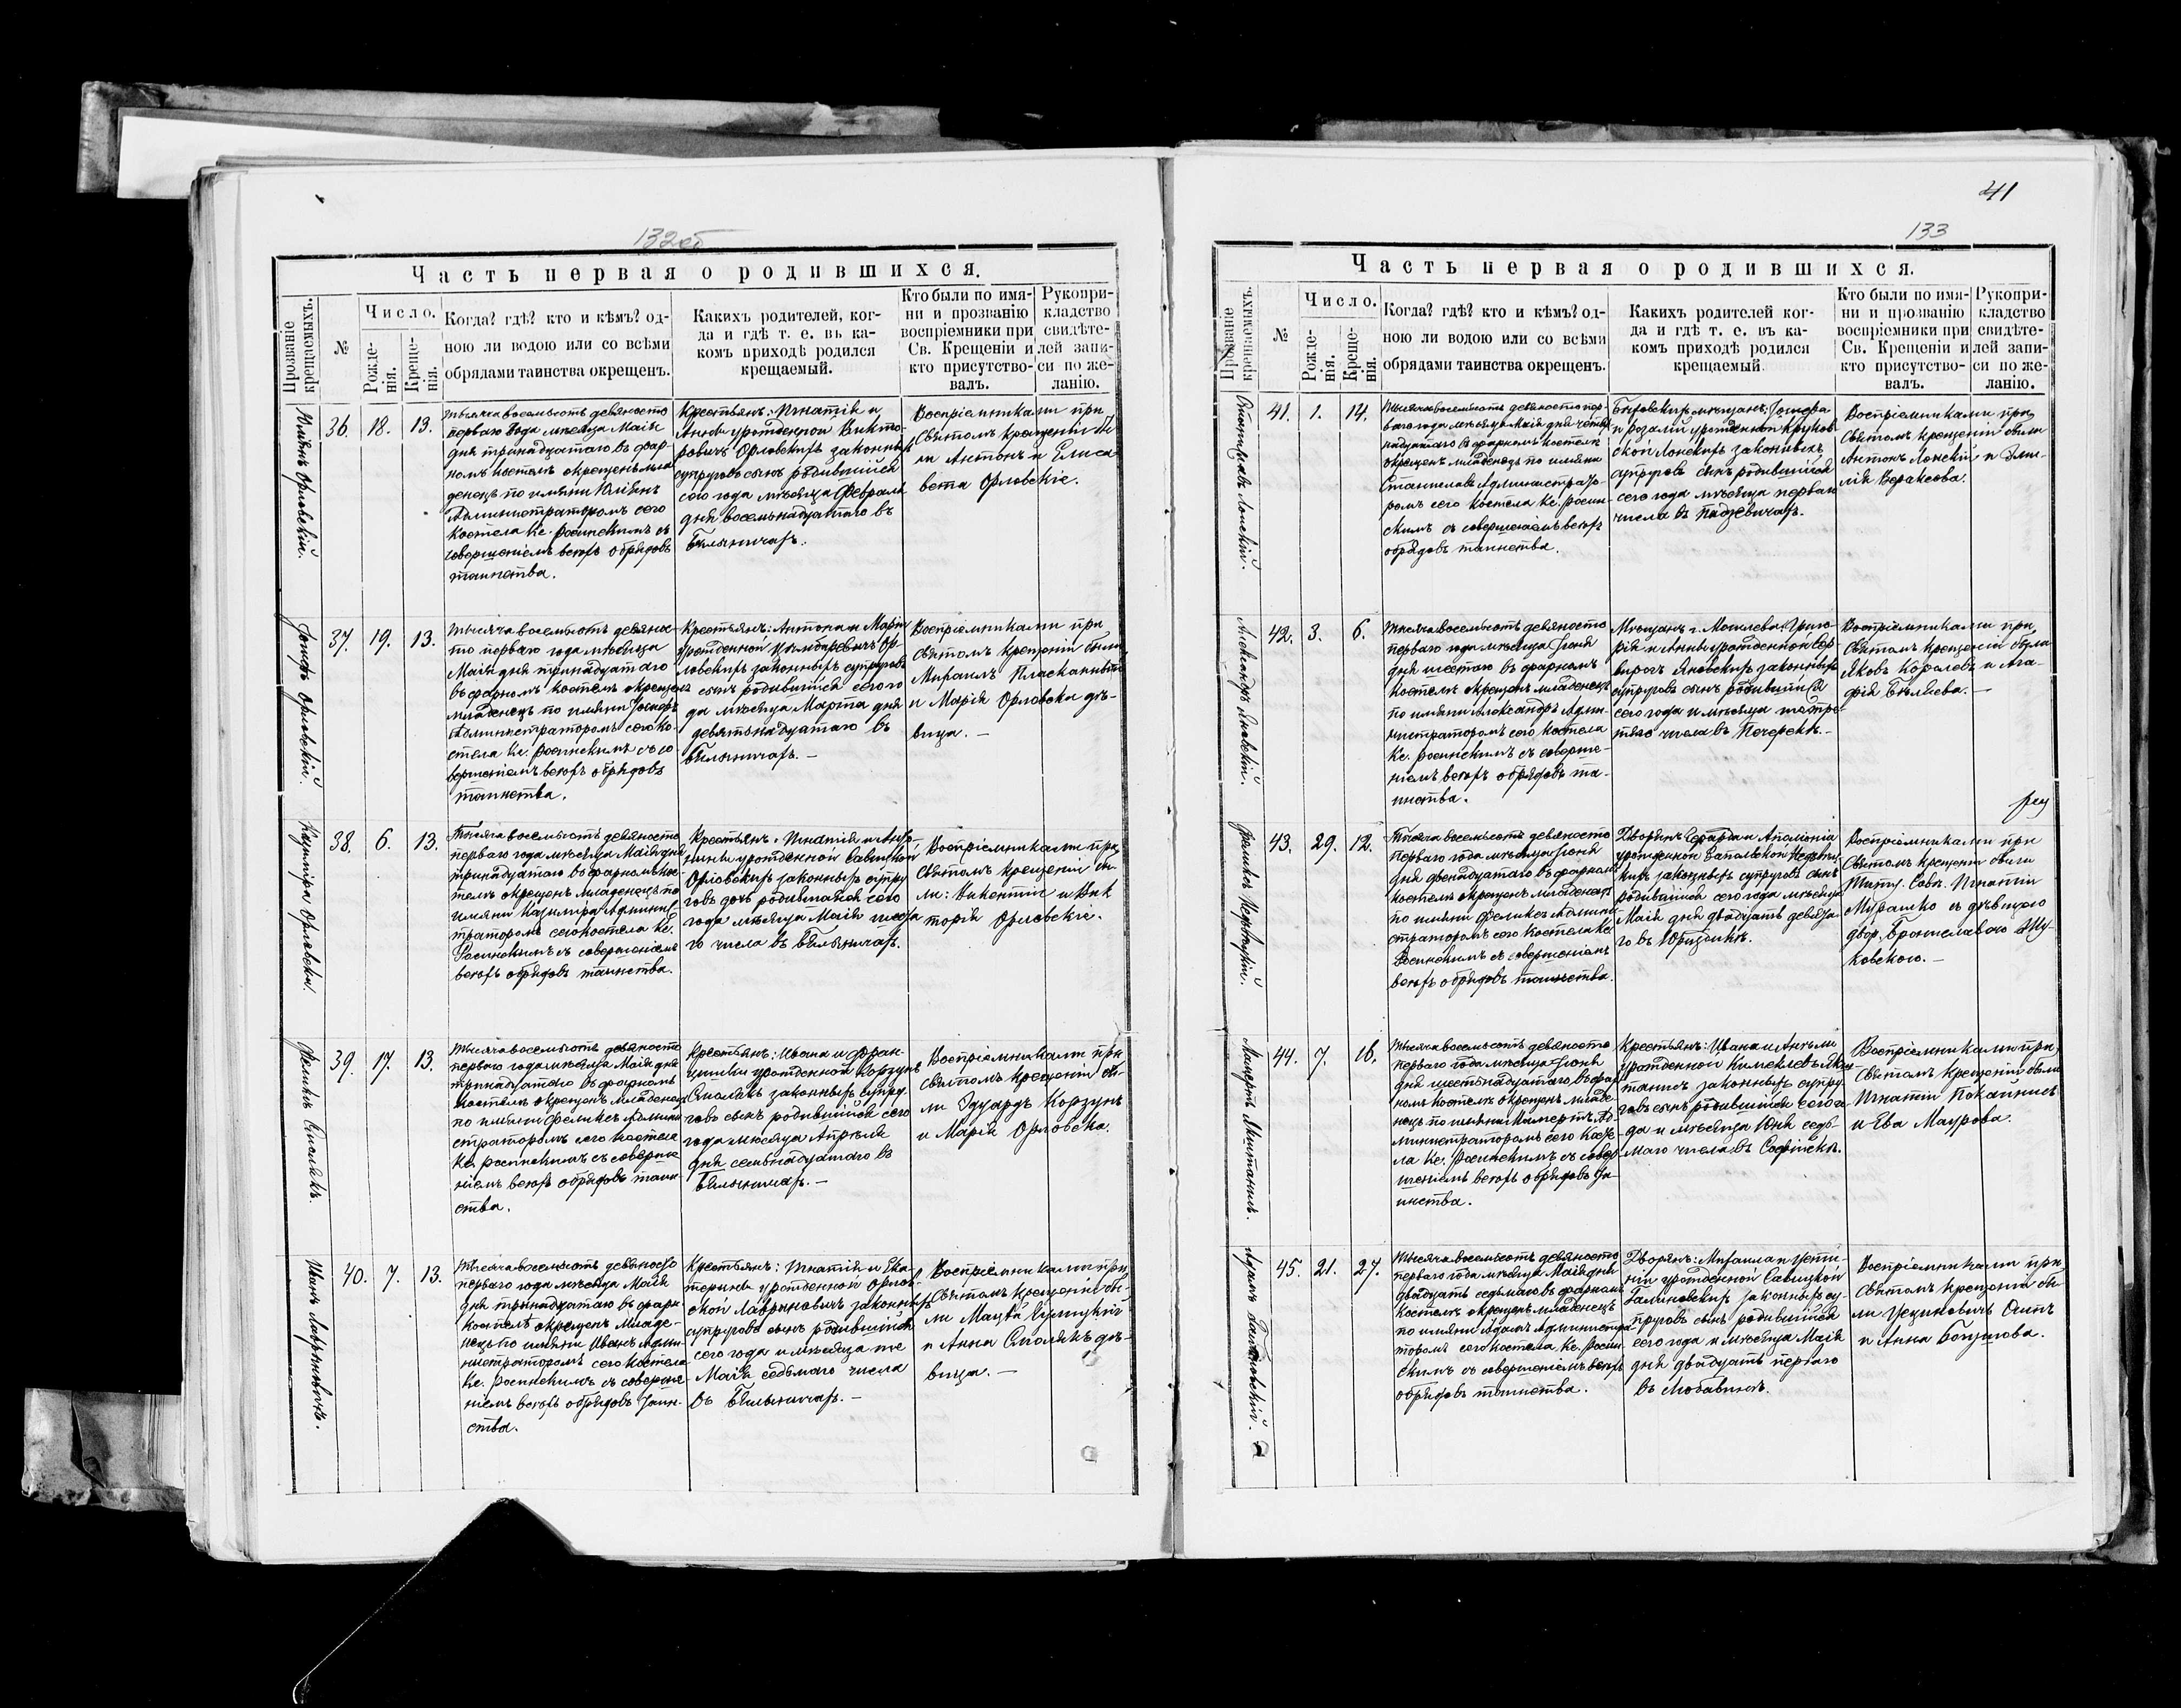 132об
Часть первая о родившихся.
Прозваніе крещаемыхъ.
№
Число.
Рожде-
нія.
Креще-
нія.
Когда? гдѣ? кто и кѣмъ? од-
ною ли водою или со всѣми
обрядами таинства окрещенъ.
Какихъ родителей, ког-
да и гдѣ т. е. въ ка-
комъ приходѣ родился
крещаемый.
Кто были по имя-
ни и прозванію
воспріемники при
Св. Крещеніи и
кто присутство-
валъ.
Рукопри-
кладство
свидѣте-
лей запи-
си по же-
ланію.
Юліянъ Орловскій.
36. 18. 13.
Тысяча восемьсотъ девяносто
перваго года мѣсяца Маія
дня тринадцатаго въ фар-
номъ костелѣ окрещенъ мла
денецъ по имяни Юліянъ
Администраторомъ сего
костела Кс. Росинскимъ съ
совершеніемъ всѣхъ обрядовъ
таинства.
Крестьянъ: Игнатія и
Анны урожденной Викто-
ровичъ Орловскихъ законныхъ
супруговъ сынъ родившійся
сего года мѣсяца Февраля
дня восемьнадцатаго въ
Бялыничахъ.
Воспріемниками при
Святомъ крещеніи бы
ли Антонъ и Елиса
вета Орловскіе.
Іосифъ Орловскій.
37. 19. 13.
Тысяча восемьсотъ девянос-
то перваго года мѣсяца
Маія дня тринадцатаго
въ фарномъ костелѣ окрещенъ
младенецъ по имяни Іосифъ
Администраторомъ сего ко-
стела Кс. Росинскимъ съ со-
вершеніемъ всѣхъ обрядовъ
таинства.
Крестьянъ: Антона и Маріи
урожденной Цимбаревичъ Ор-
ловскихъ законныхъ супруговъ
сынъ родившійся сего го
да мѣсяца Марта дня
девятьнадцатаго въ
Бялыничахъ. —
Воспріемниками при
Святомъ крещеніи были
Михаилъ
и Марія Орловска дѣ-
вица. —
Казиміра Орловска.
38. 6. 13.
Тысяча восемьсотъ девяносто
перваго года мѣсяца Маія дня
тринадцатаго въ фарномъ кос-
телѣ окрещенъ младенецъ по
имяни Казиміра Админис
траторомъ сего костела Кс.
Росинскимъ съ совершеніемъ
всѣхъ обрядовъ таинства.
Крестьянъ: Игнатія и
урожденной Савицкой
Орловскихъ законныхъ супру
говъ дочь родившаяся сего
года мѣсяца Маія шеста
го числа въ Бялыничахъ.
Воспріемниками при
Святомъ крещеніи бы-
ли: Викентій и Вик
торія Орловскіе.
Феликсъ Смолякъ.
39. 17. 13.
Тысяча восемьсотъ девяносто
перваго года мѣсяца Маія дня
тринадцатаго въ фарномъ
костелѣ окрещенъ младенецъ
по имяни Феликсъ Админи
страторомъ сего костела
Кс. Росинскимъ съ соверше
ніемъ всѣхъ обрядовъ таин-
ства.
Крестьянъ: Ивана и Фран-
цишки урожденной Корзунъ
Смолякъ законныхъ супру-
говъ сынъ родившійся сего
года мѣсяца Апрѣля
дня семьнадцатаго въ
Бялыничахъ. —
Воспріемниками при
Святомъ крещеніи бы-
ли Эдуардъ Корзунъ
и Марія Орловска.
Иванъ Лавриновичъ.
40. 7. 13.
Тысяча восемьсотъ девяносто
перваго года мѣсяца Маія
дня тринадцатаго въ фарн.
костелѣ окрещенъ младе-
нецъ по имяни Иванъ Адми-
нистраторомъ сего костела
Кс. Росинскимъ съ соверше
ніемъ всѣхъ обрядовъ таин-
ства.
Крестьянъ: Игнатія и Ека-
терины урожденной Орлов-
ской Лавриновичъ законныхъ
супруговъ сынъ родившійся
сего года и мѣсяца же
Маія седьмаго числа
въ Бялыничахъ. —
Воспріемниками при
Святомъ крещеніи бы-
ли
и Анна Смолякъ дѣ-
вица. —
41
133
Часть первая о родившихся.
Прозваніе крещаемыхъ.
№
Число.
Рожде-
нія.
Креще-
нія.
Когда? гдѣ? кто и кѣмъ? од-
ною ли водою или со всѣми
обрядами таинства окрещенъ.
Какихъ родителей ког-
да и гдѣ т. е. въ ка-
комъ приходѣ родился
крещаемый.
Кто были по имя-
ни и прозванію
воспріемники при
Св. Крещеніи и
кто присутство-
валъ.
Рукопри-
кладство
свидѣте-
лей запи-
си по же-
ланію.
Станиславъ Лонскій.
41. 1. 14.
Тысяча восемьсотъ девяносто пер-
ваго года мѣсяца Маія дня четыр
надцатаго въ фарномъ костелѣ
окрещенъ младенецъ по имяни
Станиславъ Администрато-
ромъ сего костела Кс. Росин-
скимъ съ совершеніемъ всѣхъ
обрядовъ таинства.
мѣщанъ: Іосифа
и Розаліи урожденной Круков
ской Лонскихъ законныхъ
супруговъ сынъ родившійся
сего года мѣсяца перваго
числа въ
Воспріемниками при
Святомъ крещеніи были
Антонъ Лонскій и Эми-
лія Вераксова.
Александръ Яновскій.
42. 3. 6.
Тысяча восемьсотъ девяносто
перваго года мѣсяца Іюня
дня шестаго въ фарномъ
костелѣ окрещенъ младенецъ
по имяни Александръ Адми-
нистраторомъ сего костела
Кс. Росинскимъ съ соверше-
ніемъ всѣхъ обрядовъ та-
инства.
Мѣщанъ г. Могилева: Григо-
рія и Анны урожденной
Яновскихъ законныхъ
супруговъ сынъ родившійся
сего года и мѣсяца же тре-
тяго числа въ Печерскѣ. —
Воспріемниками при
Святомъ крещеніи были
Яковъ Королевъ и Ага-
фія Бѣляева. —
Феликсъ
43. 29. 12.
Тысяча восемьсотъ девяносто
перваго года мѣсяца Іюня
дня двенадцатаго въ фарномъ
костелѣ окрещенъ младенецъ
по имяни Феликсъ Админи-
страторомъ сего костела Кс.
Росинскимъ съ совершеніемъ
всѣхъ обрядовъ таинства.
Дворянъ: и Аполоніи
урожденной
кихъ законныхъ супруговъ сынъ
родившійся сего года мѣсяца
Маія дня двадцать девята-
го въ
Воспріемниками при
Святомъ крещеніи были
Титул. Совѣт. Игнатій
Мурашко съ дѣвицею
двор. Брониславою Жу-
ковскою. —
44. 7. 16.
Тысяча восемьсотъ девяносто
перваго года мѣсяца Іюня
дня шестьнадцатаго въ фар
номъ костелѣ окрещенъ младе-
нецъ по имяни Ад-
министраторомъ сего косте-
ла Кс. Росинскимъ съ совер-
шеніемъ всѣхъ обрядовъ та-
инства.
Крестьянъ: Ивана и Анѣли
урожденной
законныхъ супру-
говъ сынъ родившійся сего го-
да и мѣсяца Юня седь-
маго числа въ Софійскѣ.
Воспріемниками при
Святомъ крещеніи были
Игнатій
и Ева Маурова.
Адамъ Галиновскій.
45. 21. 27.
Тысяча восемьсотъ девяносто
перваго года мѣсяца Маія дня
двадцать седьмаго въ фарномъ
костелѣ окрещенъ младенецъ
по имяни Адамъ Администра-
торомъ сего костела Кс. Росин
скимъ съ совершеніемъ всѣхъ
обрядовъ таинства.
Дворянъ: Михаила и Усти-
ніи урожденной Савицкой
Галиновскихъ законныхъ су-
пруговъ сынъ родившійся
сего года и мѣсяца Маія
дня двадцать перваго
въ Любавичахъ.
Воспріемниками при
Святомъ крещеніи бы-
ли
и Анна